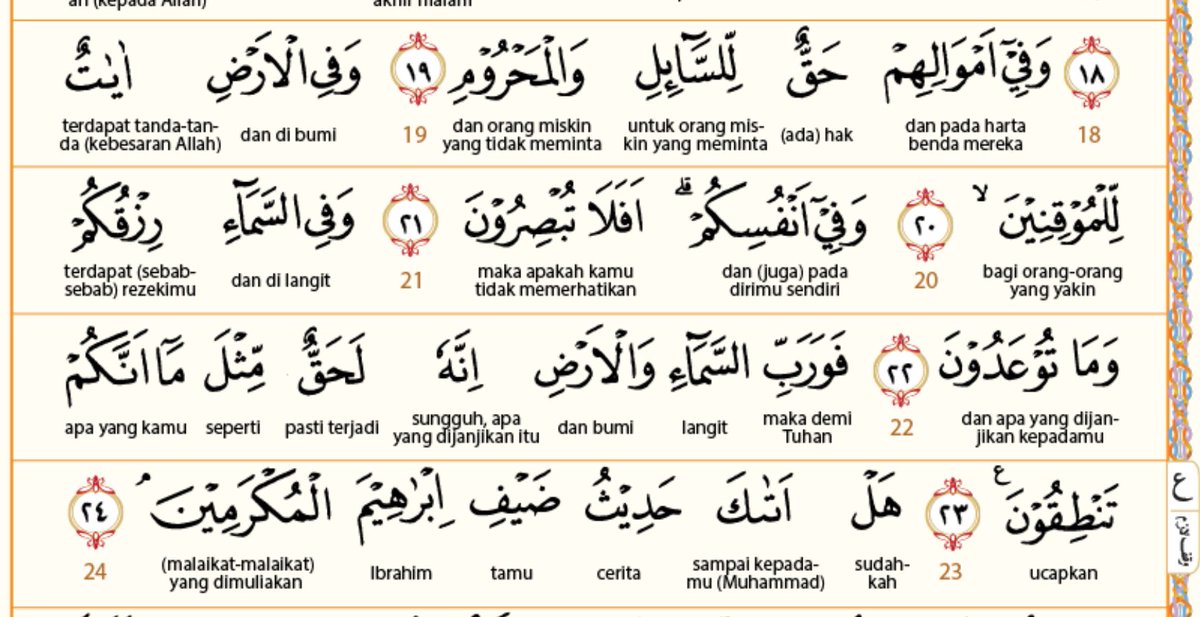 an (kepada Allah) akhir malam
١٨ وَفِيْٓ اَمْوَالِهِمْ حَقٌّ لِّلسَّاۤىِٕلِ وَالْمَحْرُوْمِ ١٩ وَفِى الْاَرْضِ اٰيٰتٌ
18 dan pada harta benda mereka (ada) hak untuk orang mis-kin yang meminta dan orang miskin yang tidak meminta 19 dan di bumi terdapat tanda-tan-da (kebesaran Allah)
لِّلْمُوْقِنِيْنَۙ ٢٠ وَفِيْٓ اَنْفُسِكُمْ ۗ اَفَلَا تُبْصِرُوْنَ ٢١ وَفِى السَّمَاۤءِ رِزْقُكُمْ
bagi orang-orang yang yakin 20 dan (juga) pada dirimu sendiri maka apakah kamu tidak memerhatikan 21 dan di langit terdapat (sebab-sebab) rezekimu
وَمَا تُوْعَدُوْنَ ٢٢ فَوَرَبِّ السَّمَاۤءِ وَالْاَرْضِ اِنَّهٗ لَحَقٌّ مِّثْلَ مَآ اَنَّكُمْ
dan apa yang dijan-jikan kepadamu 22 maka demi Tuhan langit dan bumi sungguh, apa yang dijanjikan itu pasti terjadi seperti apa yang kamu
تَنْطِقُوْنَ ࣖ ٢٣ هَلْ اَتٰىكَ حَدِيْثُ ضَيْفِ اِبْرٰهِيْمَ الْمُكْرَمِيْنَۘ ٢٤
ucapkan 23 sudah-kah sampai kepada-mu (Muhammad) cerita tamu Ibrahim (malaikat-malaikat) yang dimuliakan 24
ع
وقف لازم